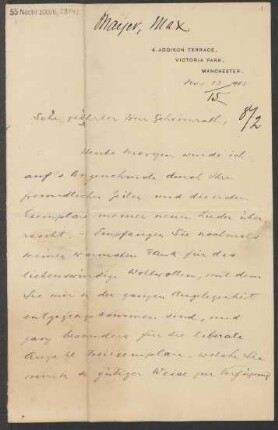 55 Nachl 100/B,
Mayer, Max
4, ADDISON TERRACE,
VICTORIA PARK,
MANCHESTER.
Nov. 13. 1901
15
8/2
Sehr geehrter Herr Geheimrath,
Heute Morgen wurde ich,
auf's Angenehmste durch Ihre
freundlichen Zeilen und die
Exemplare meiner neuen Lieder über-
rascht. – Empfangen Sie nochmals
meinen wärmsten Dank für das
liebenswürdige Wohlwollen, mit dem
Sie mir in der ganzen Angelegenheit
entgegengekommen sind, und
ganz besonders für die liberale
Anzahl Freiexemplare, welche Sie
mir in so gütiger Weise zur Verfügung